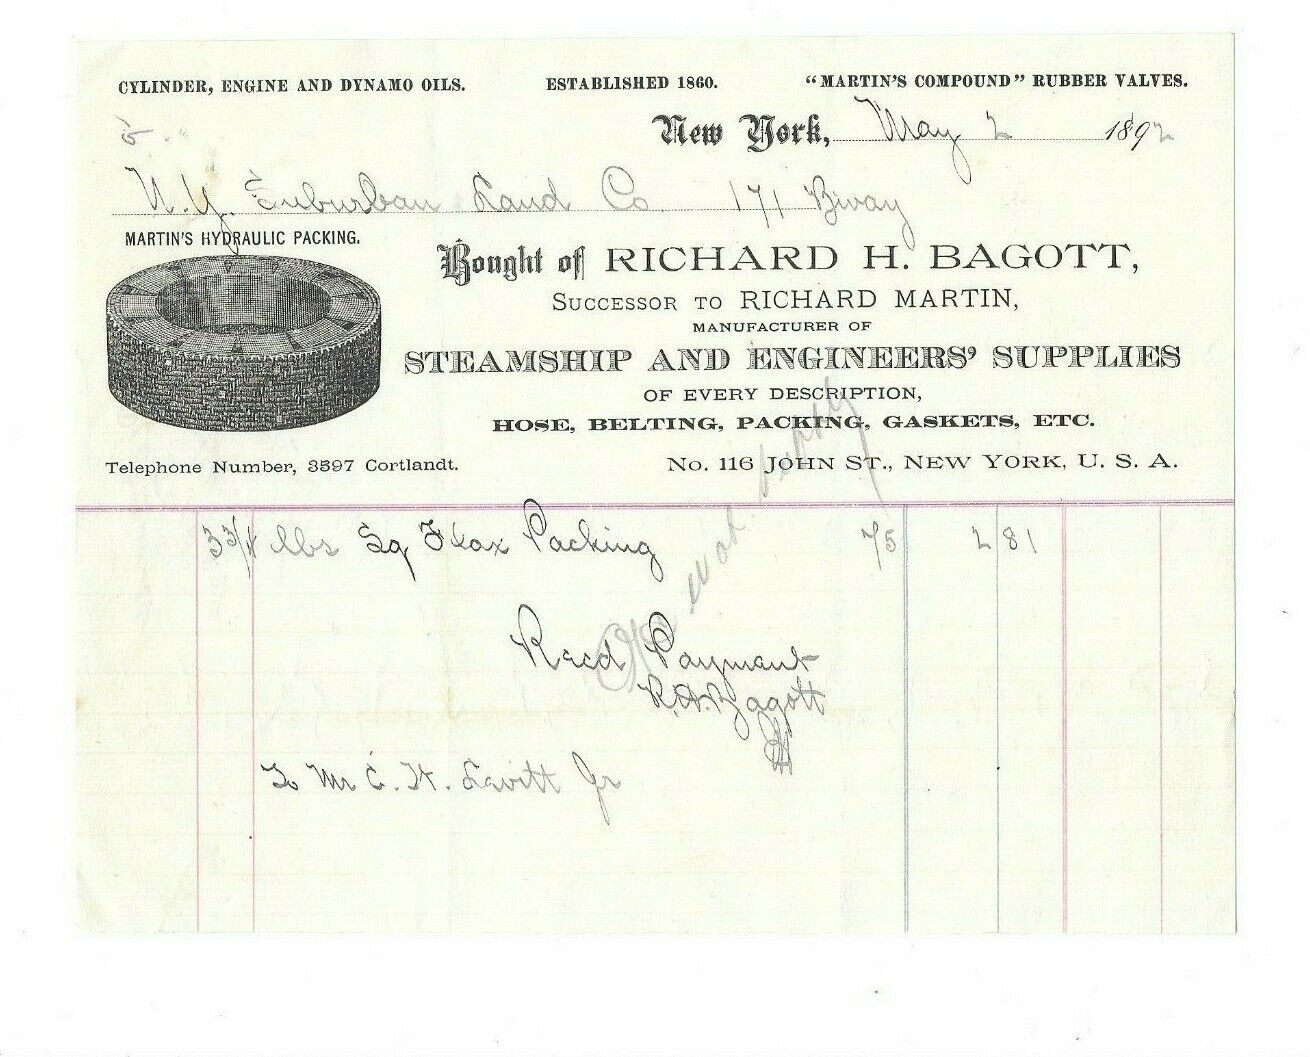 CYLINDER, ENGINE AND DYNAMO OILS. ESTABLISHED 1860. "MARTIN'S COMPOUND" RUBBER VALVES.
New York, May 2 1892
N.Y. Suburban Land Co 171 Bway
MARTIN'S HYDRAULIC PACKING.
Bought of RICHARD H. BAGOTT,
SUCCESSOR TO RICHARD MARTIN,
MANUFACTURER OF
STEAMSHIP AND ENGINEERS' SUPPLIES
OF EVERY DESCRIPTION,
HOSE, BELTING, PACKING, GASKETS, ETC.
Telephone Number, 3597 Cortlandt. No. 116 JOHN ST., NEW YORK, U. S. A.
3 3/4 lbs Sq Flax Packing 75 2 81
Recd Payment
R.H. Bagott
To Mr C. H. Lavitt Jr